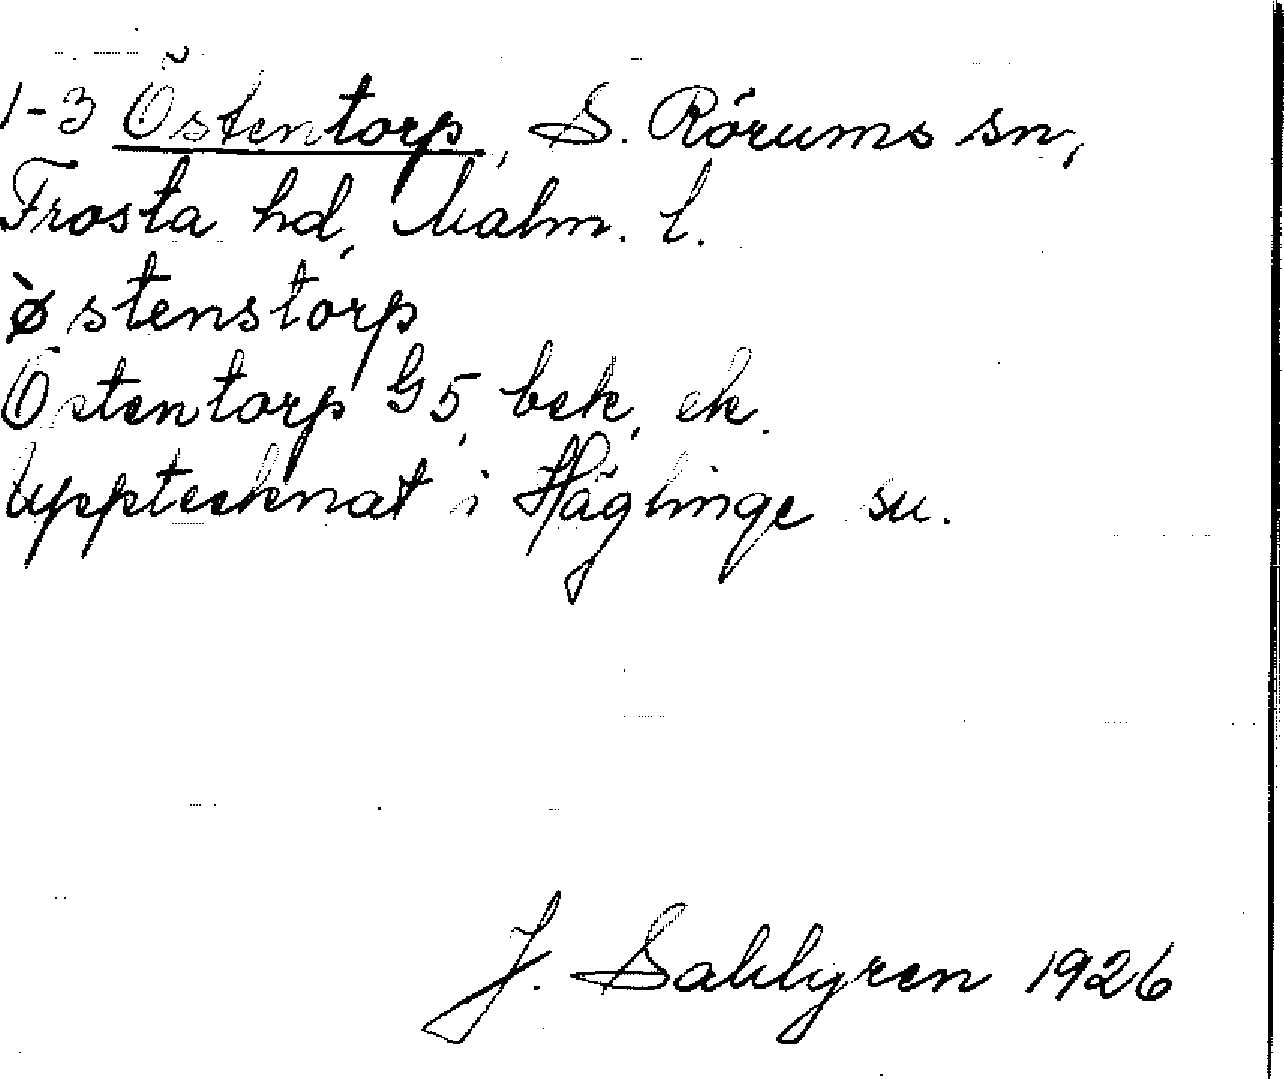 1-3 Östentorp, S. Rörums sn,
Frosta hd, Malm. l.
ø̀stenstórp
Östentorp G5, bek, ek.
Upptecknat i Häglinge sn.
J. Sahlgren 1926